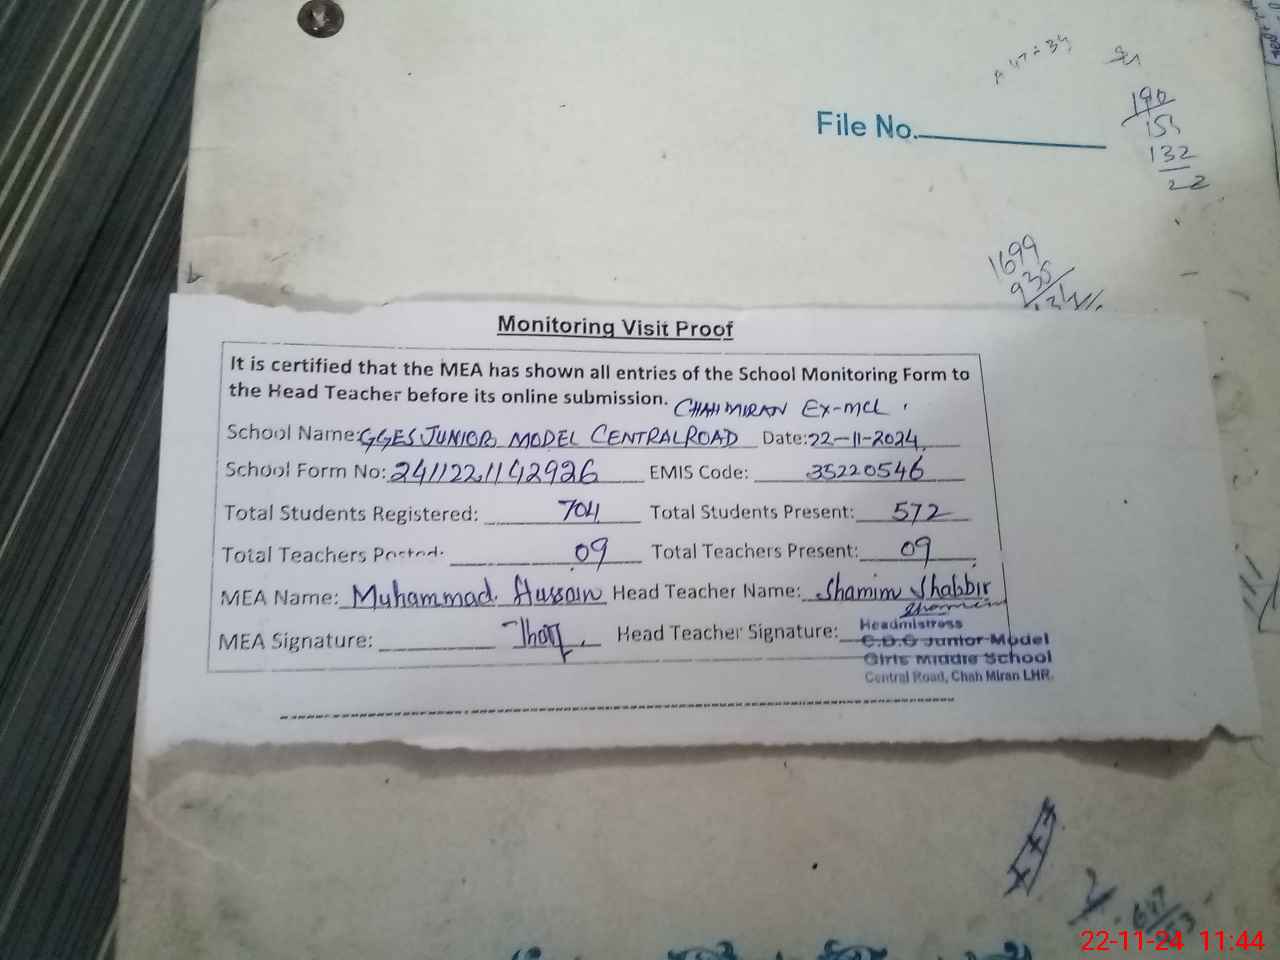 File No.
190
155
132
22
1699
935
Monitoring Visit Proof
It is certified that the MEA has shown all entries of the School Monitoring Form to
the Head Teacher before its online submission. CHAH MIRAN EX-MCL.
School Name: GGES JUNIOR MODEL CENTRAL ROAD Date: 22-11-2024
School Form No: 2411221142926 EMIS Code: 35220546
Total Students Registered: 704 Total Students Present: 572
Total Teachers Posted: 09 Total Teachers Present: 09
MEA Name: Muhammad Hussain Head Teacher Name: Shamim Shabbir
MEA Signature: Head Teacher Signature: Shamim
Headmistress
C.D.G Junior Model
Girls Middle School
Central Road, Chah Miran LHR.
22-11-24 11:44